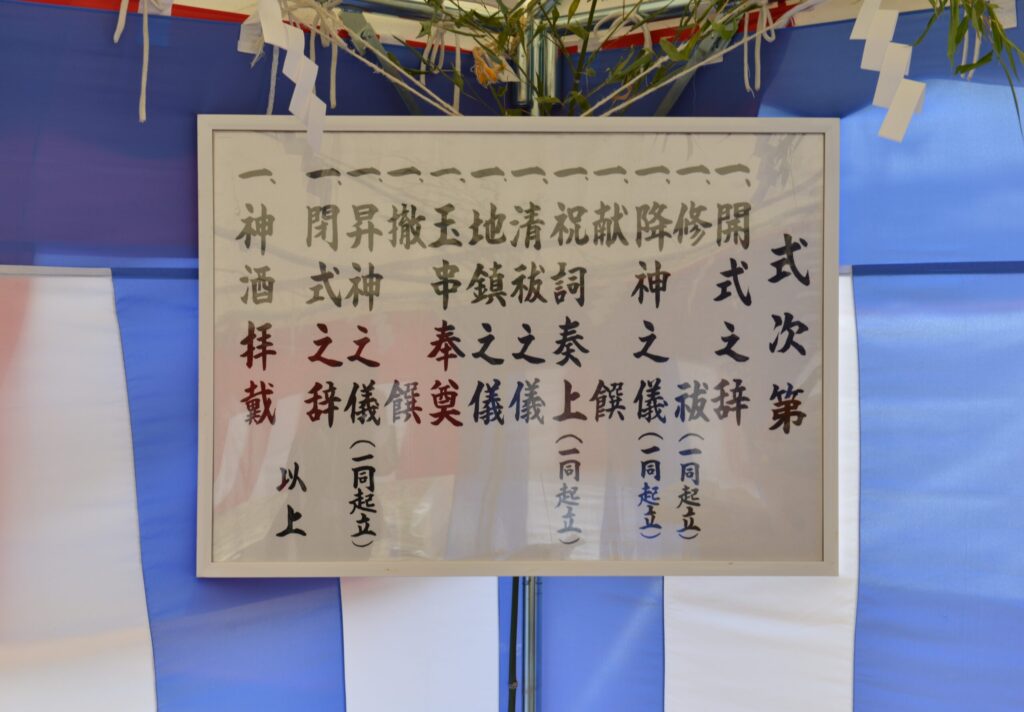 式次第
一、開式之辞
一、修祓(一同起立)
一、降神之儀(一同起立)
一、献饌
一、祝詞奏上(一同起立)
一、清祓之儀
一、地鎮之儀
一、玉串奉奠
一、撤饌
一、昇神之儀(一同起立)
一、閉式之辞
一、神酒拝戴
以上